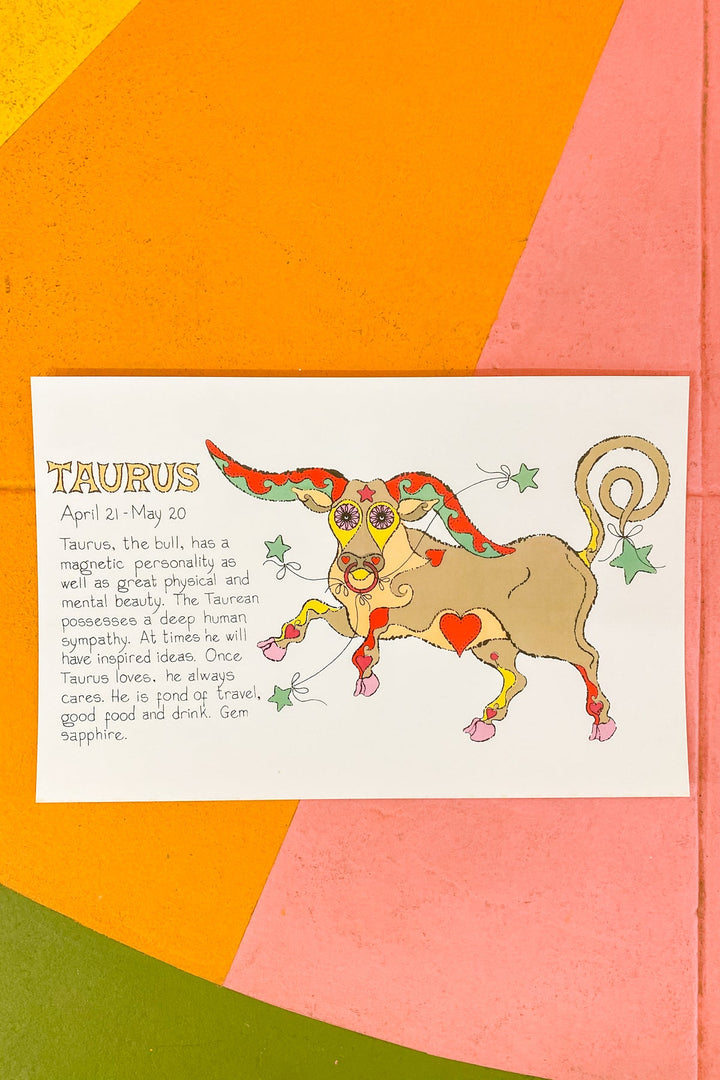 TAURUS
April 21 - May 20
Taurus, the bull, has a
magnetic personality as
well as great physical and
mental beauty. The Taurean
possesses a deep human
sympathy. At times he will
have inspired ideas. Once
Taurus loves, he always
cares. He is fond of travel,
good food and drink. Gem
sapphire.